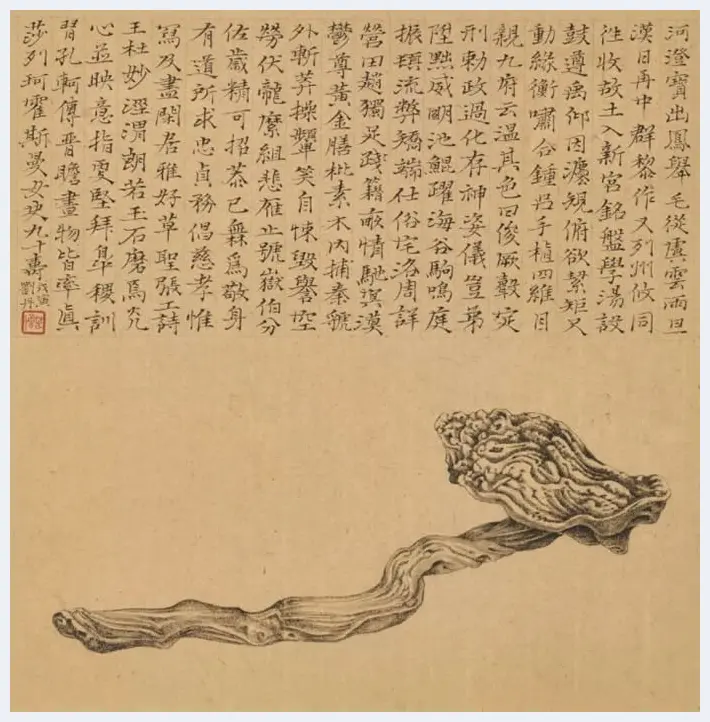 河澄寶出鳳舉毛從虞雲雨旦
漢日再中群黎作乂列州攸同
往收故土入新宮銘盤學湯設
鼓遵禹仰因瀍規俯欲絜矩又
動綠衡嘯谷鍾呂手植四維目
親九府云溫其色曰俊厥彀定
刑勅政過化存神姿儀豈弟
陞黜威明池鯤躍海谷駒鳴庭
振頹流弊矯端仕俗宅洛周詳
營田趙獨足踐籍畝情馳淇澳
鬱尊黃金膳枇素木內捕秦虢
外斬莽操顰笑自悚毀譽空
勞伏龍縻組悲雁止號嶽伯分
佐歲精可招恭已無為敬身
有道所求忠貞務倡慈孝惟
寫及盡閑居雅好草聖張工詩
王杜妙涇渭朗若玉石磨焉究
心並映意指更堅拜皋稷訓
習孔軻傳晉瞻畫物皆率真
莎列珂霍斯曼女史九十壽
戊寅
劉丹